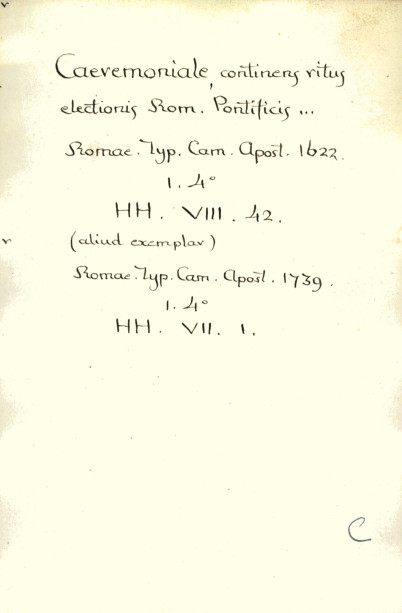 Caeremoniale, continens ritus
electionis Rom. Pontificis ...
Romae. Typ. Cam. Apost. 1622.
1. 4°
HH. VIII. 42.
(aliud exemplar)
Romae. Typ. Cam. Apost. 1739.
1. 4°
HH. VII. 1.
C